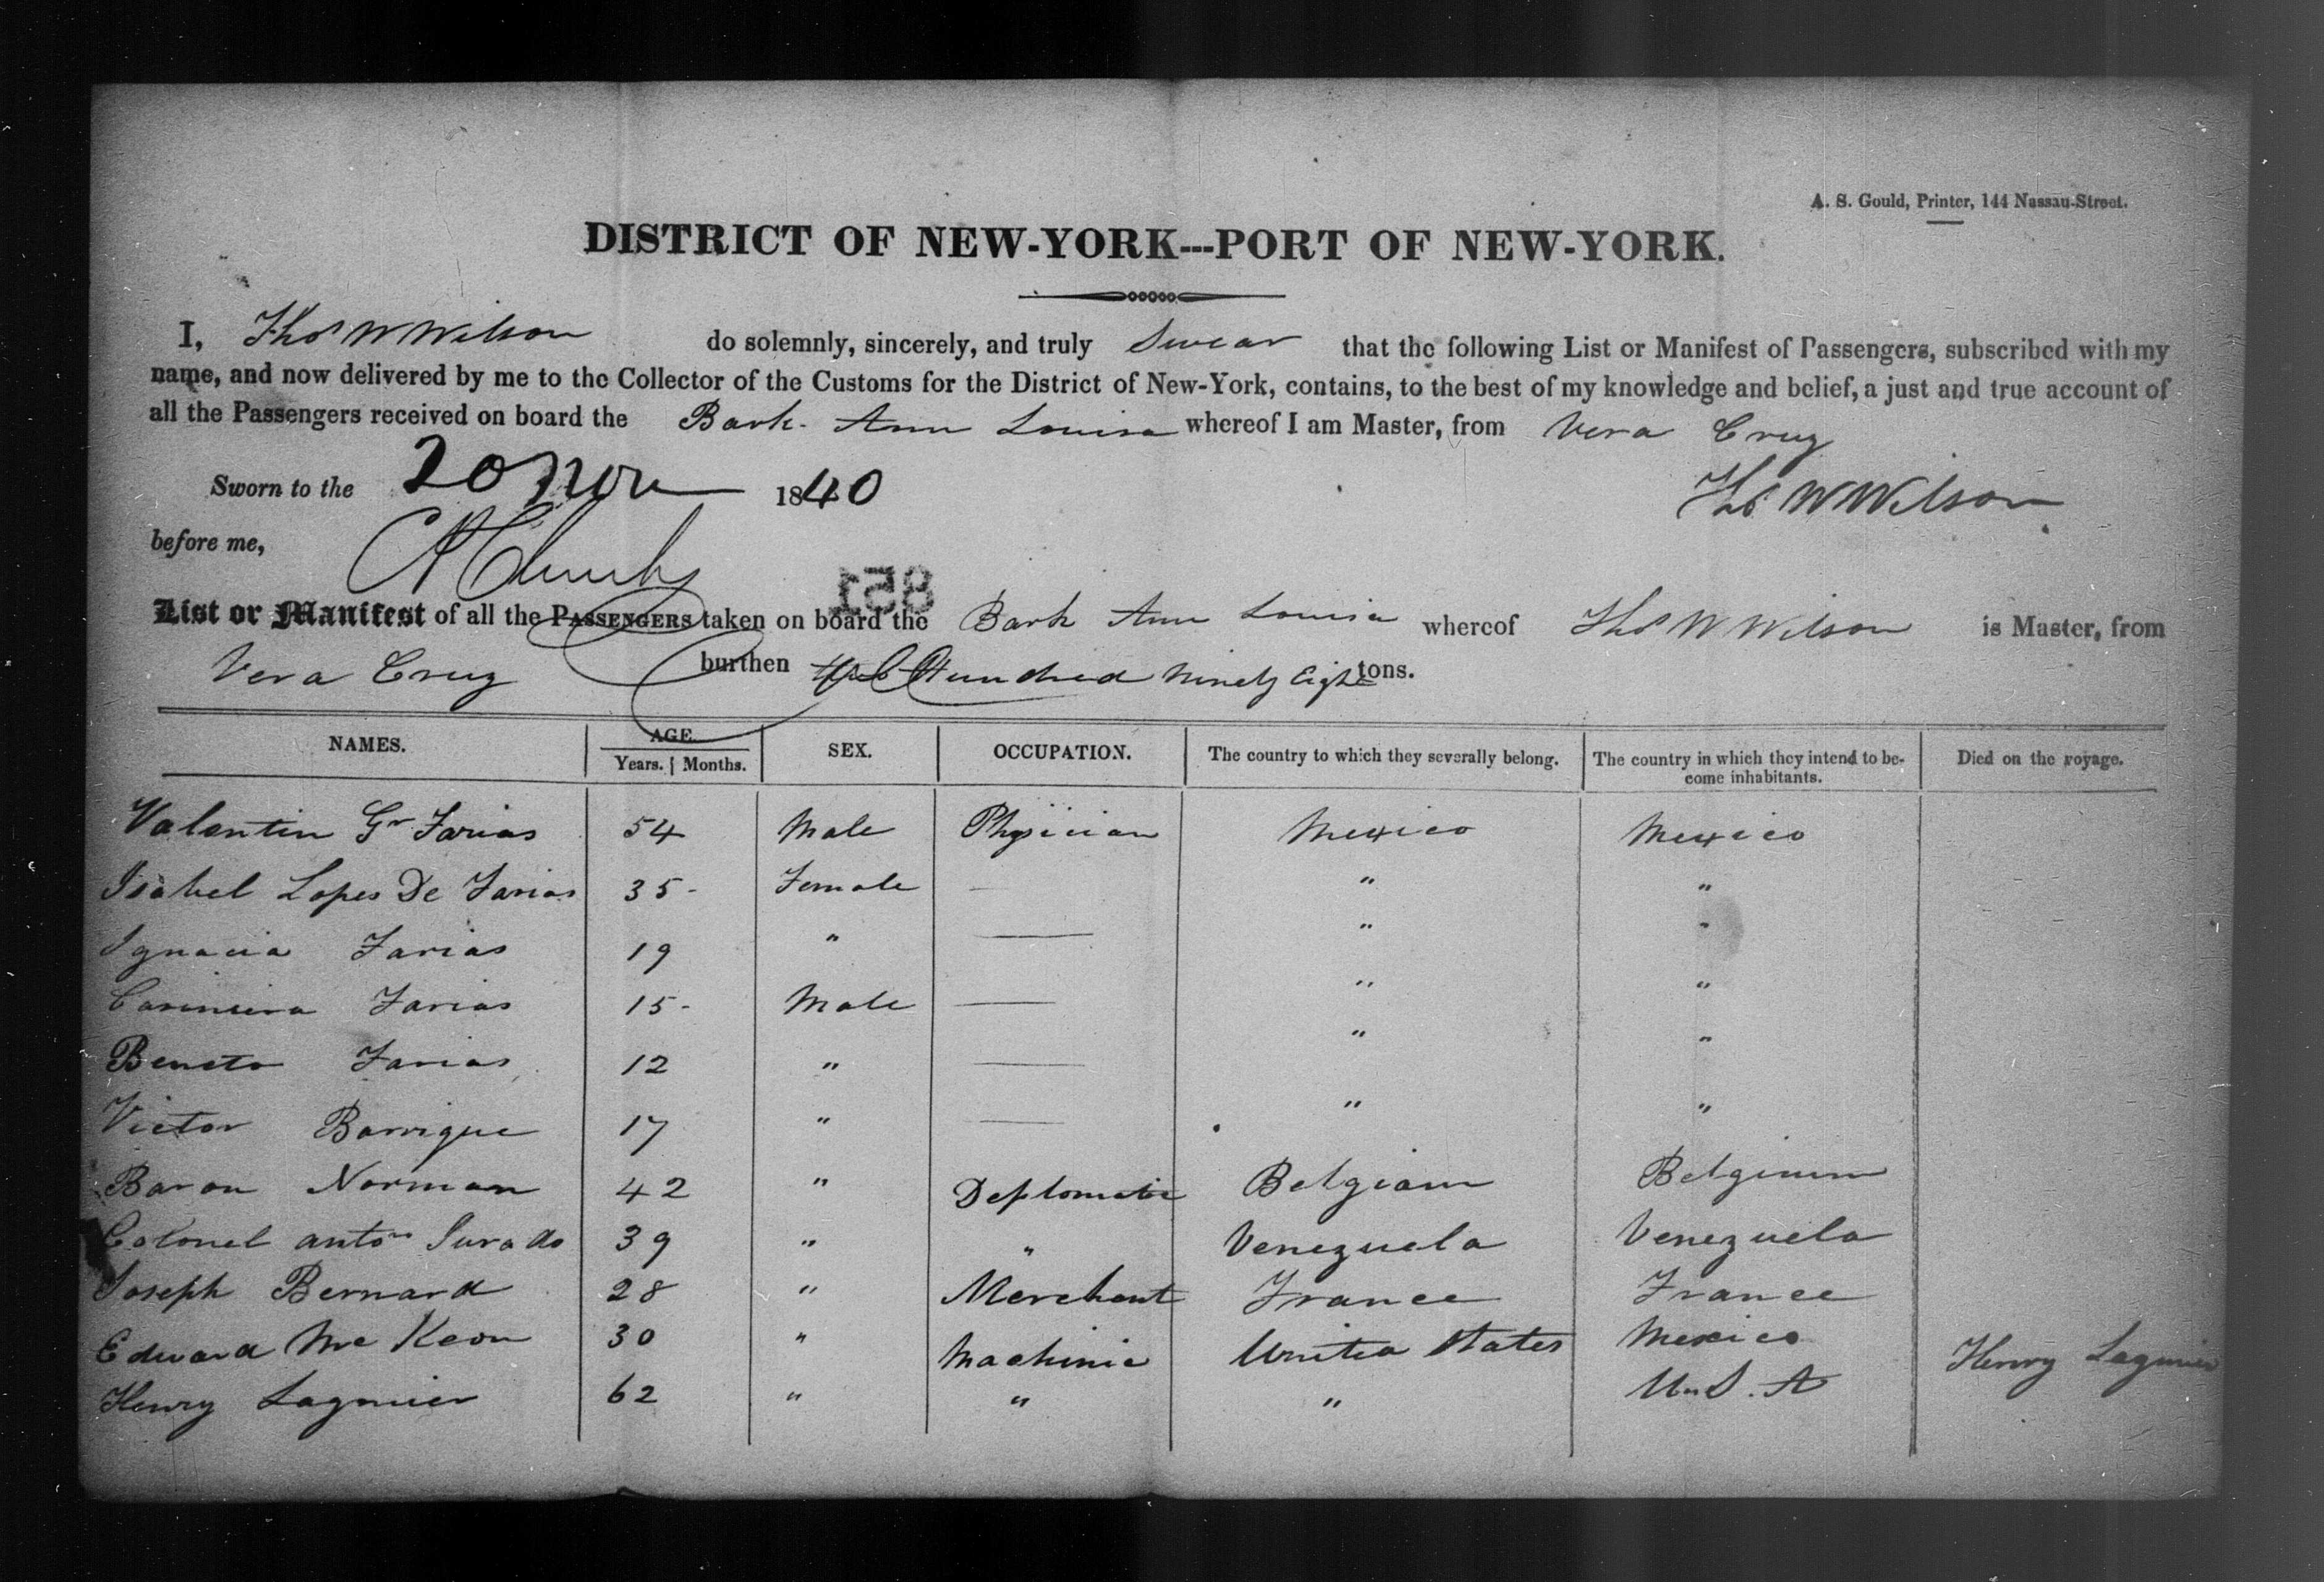 A. S. Gould, Printer, 144 Nassau-Street.
DISTRICT OF NEW-YORK---PORT OF NEW-YORK.
I, Thos W Wilson do solemnly, sincerely, and truly Swear that the following List or Manifest of Passengers, subscribed with my
name, and now delivered by me to the Collector of the Customs for the District of New-York, contains, to the best of my knowledge and belief, a just and true account of
all the Passengers received on board the Bark Ann Louisa whereof I am Master, from Vera Cruz
Sworn to the 20 Nov 1840
Thos W Wilson
before me,
851
List or Manifest of all the PASSENGERS taken on board the Bark Ann Louisa whereof Thos W Wilson is Master, from
Vera Cruz burthen Hundred Ninety Eight tons.
NAMES. AGE. SEX. OCCUPATION. The country to which they severally belong. The country in which they intend to be- Died on the voyage.
Years. Months. come inhabitants.
Valentin Gr Farias 54 Male Physician Mexico Mexico
Isabel Lopes De Farias 35 - Female — " "
Ignacia Farias 19 " — " "
Farias 15 - Male — " "
Beneto Farias 12 " — " "
Victor Barrigue 17 " — " "
Baron Norman 42 " Deplomatic Belgiam Belginum
Colonel anto Jurado 39 " " Venezuela Venezuela
Joseph Bernard 28 " Merchant France France
Edward Mc Keon 30 " Machinic United States Mexico
Henry Lagmier 62 " " " U.S.A Henry Lagmier